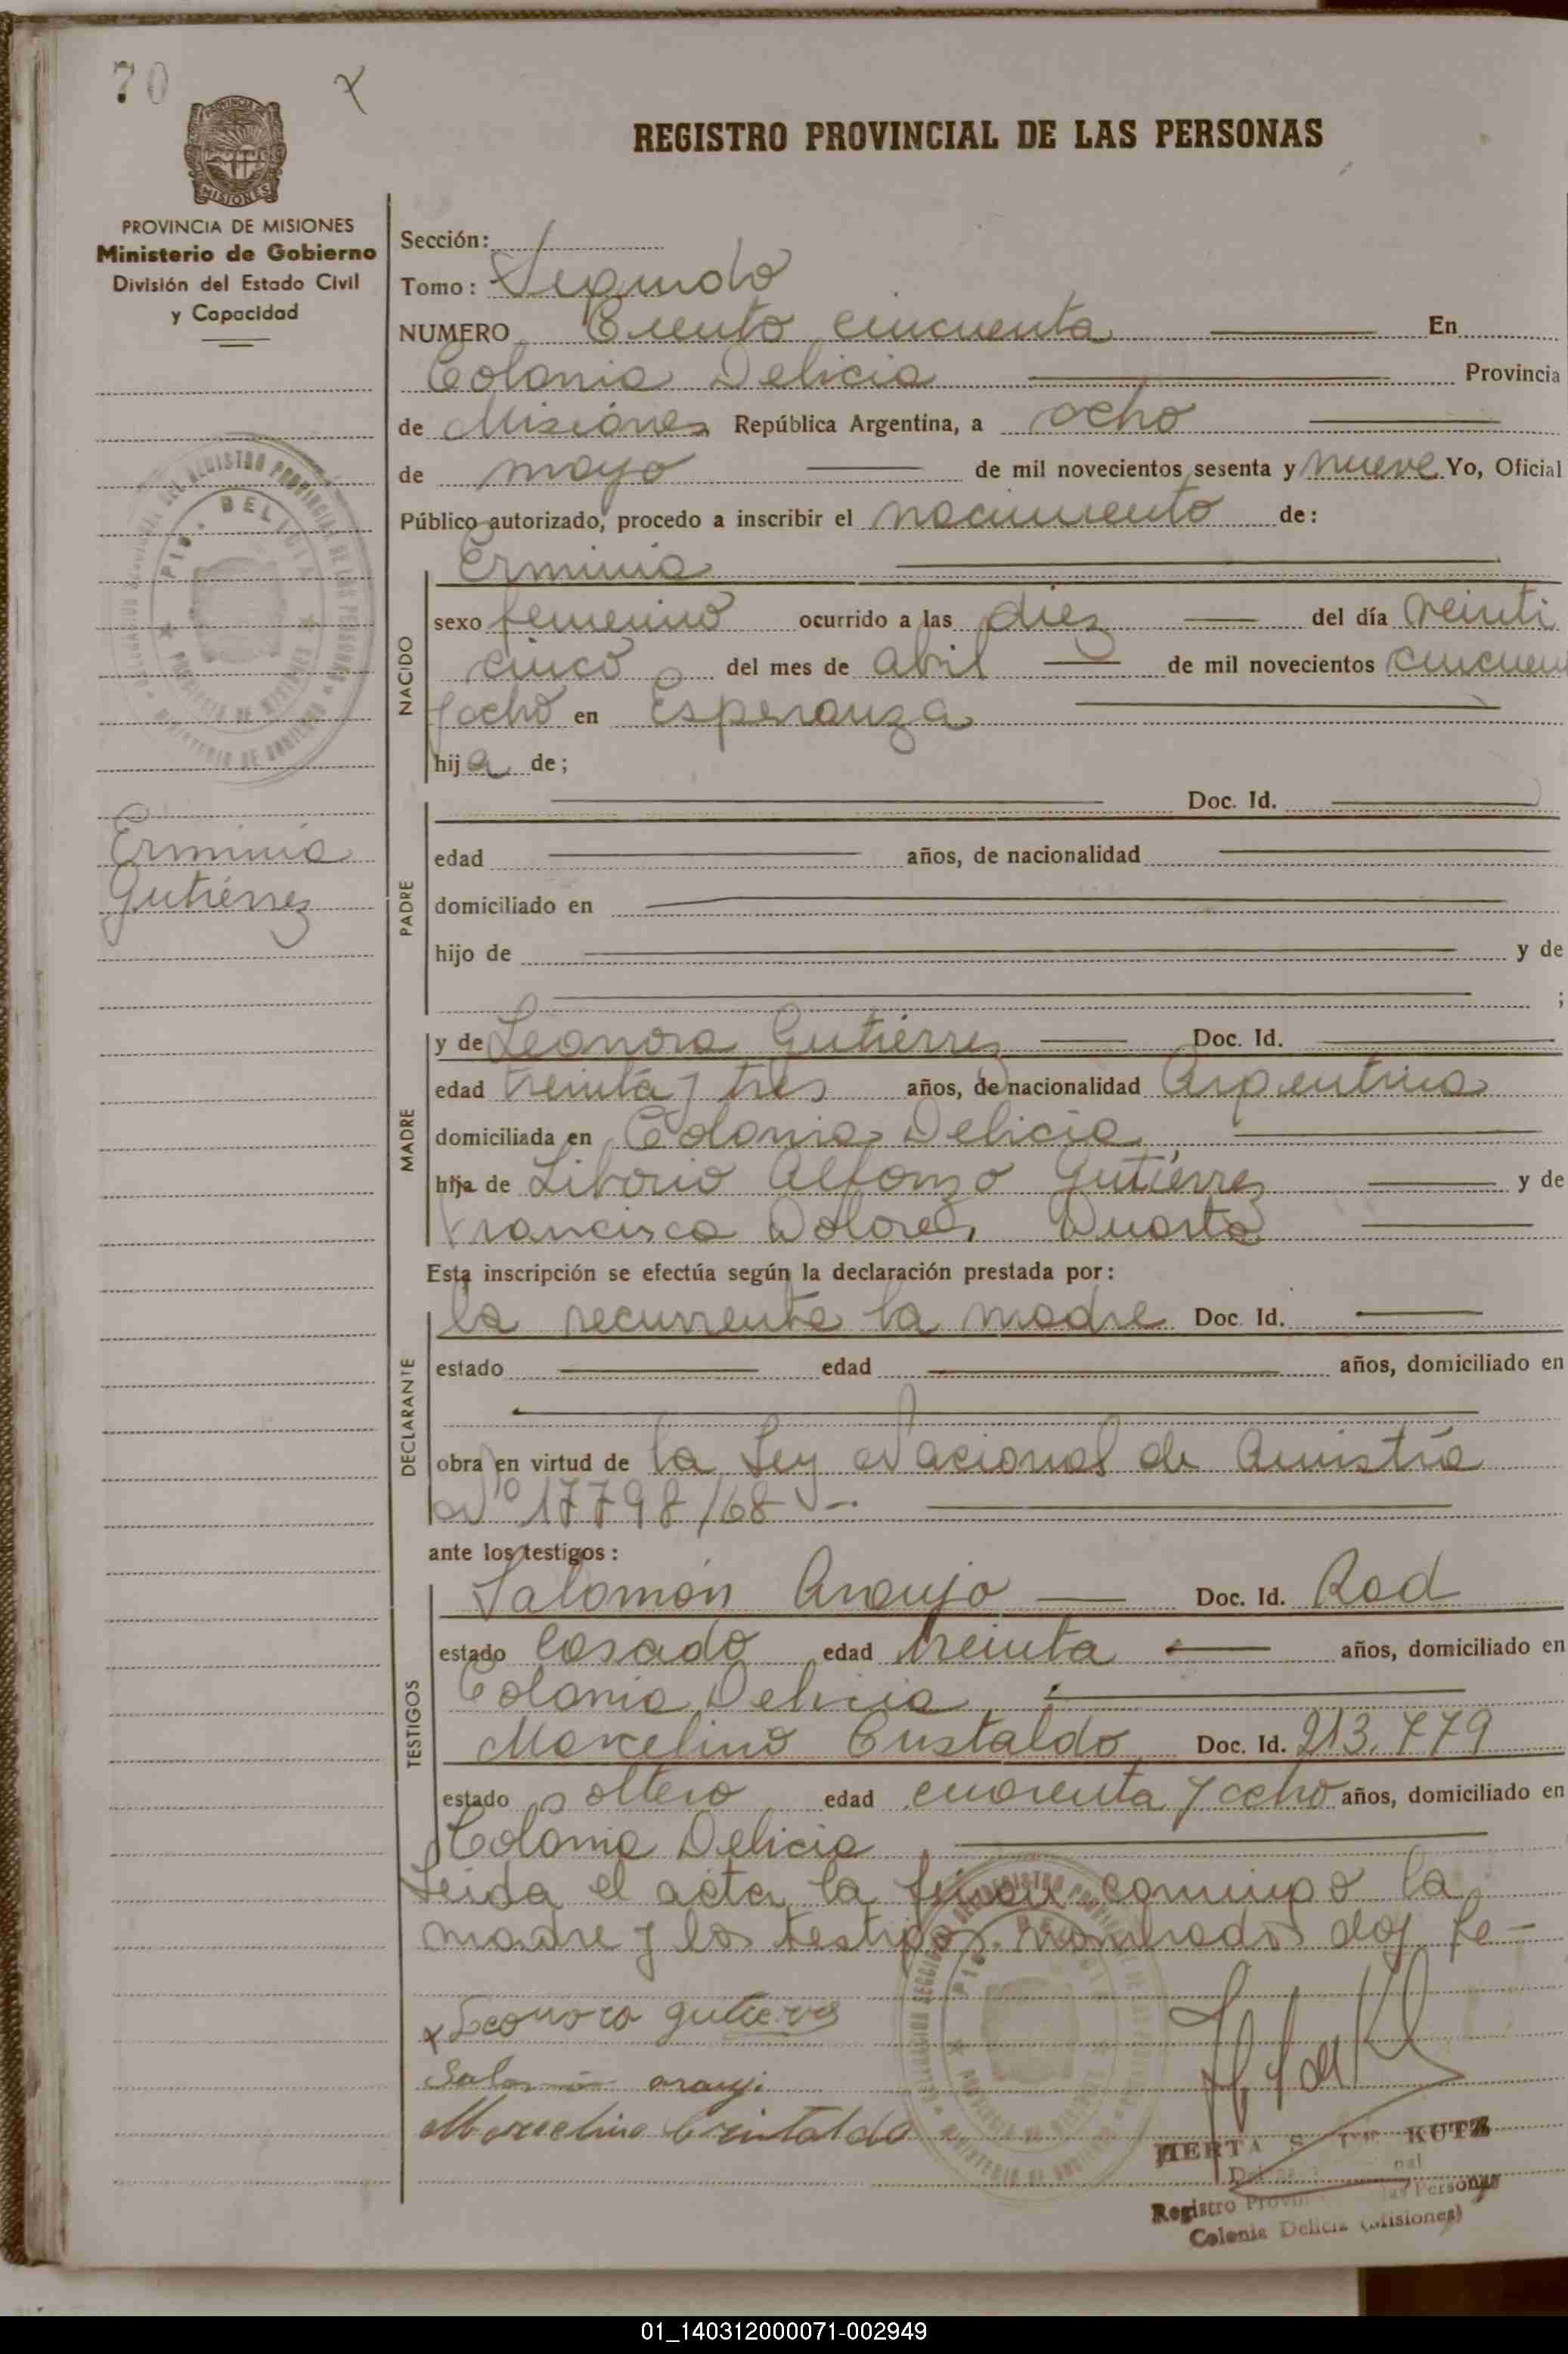 70
REGISTRO PROVINCIAL DE LAS PERSONAS
PROVINCIA DE MISIONES
Ministerio de Gobierno
División del Estado Civil
y Capacidad
Sección:
Tomo: Segundo
NUMERO Ciento cincuenta En
Colonia Delicia Provincia
de Misiones República Argentina, a ocho
de mayo de mil novecientos sesenta y nueve Yo, Oficial
Público autorizado, procedo a inscribir el nacimiento de:
NACIDO
Erminia
sexo femenino ocurrido a las diez del día veinti
cinco del mes de abril de mil novecientos cincuen
y ocho en Esperanza
hija de;
Erminia
Gutiérrez
PADRE
Doc. Id.
edad años, de nacionalidad
domiciliado en
hijo de y de
;
MADRE
y de Leonora Gutiérrez Doc. Id.
edad treinta y tres años, de nacionalidad Argentina
domiciliada en Colonia Delicia
hija de Liborio Alfonzo Gutiérrez y de
Francisca Dolores Duarte
Esta inscripción se efectúa según la declaración prestada por:
DECLARANTE
la recurrente la madre Doc. Id.
estado edad años, domiciliado en
obra en virtud de la Ley Nacional de Amistía
Nº 17798/68
ante los testigos:
TESTIGOS
Salomón Araujo Doc. Id. Rad
estado Casado edad treinta años, domiciliado en
Colonia Delicia
Marcelino Cristaldo Doc. Id. 213.779
estado soltero edad cuarenta y ocho años, domiciliado en
Colonia Delicia
Leida el acta la firman conmigo la
madre y los testigos nombrados doy fe
x Leonora gutierres
Marcelino Cristaldo
HERTA KUTZ
Registro Personas
Colonia Delicia (Misiones)
01_140312000071-002949